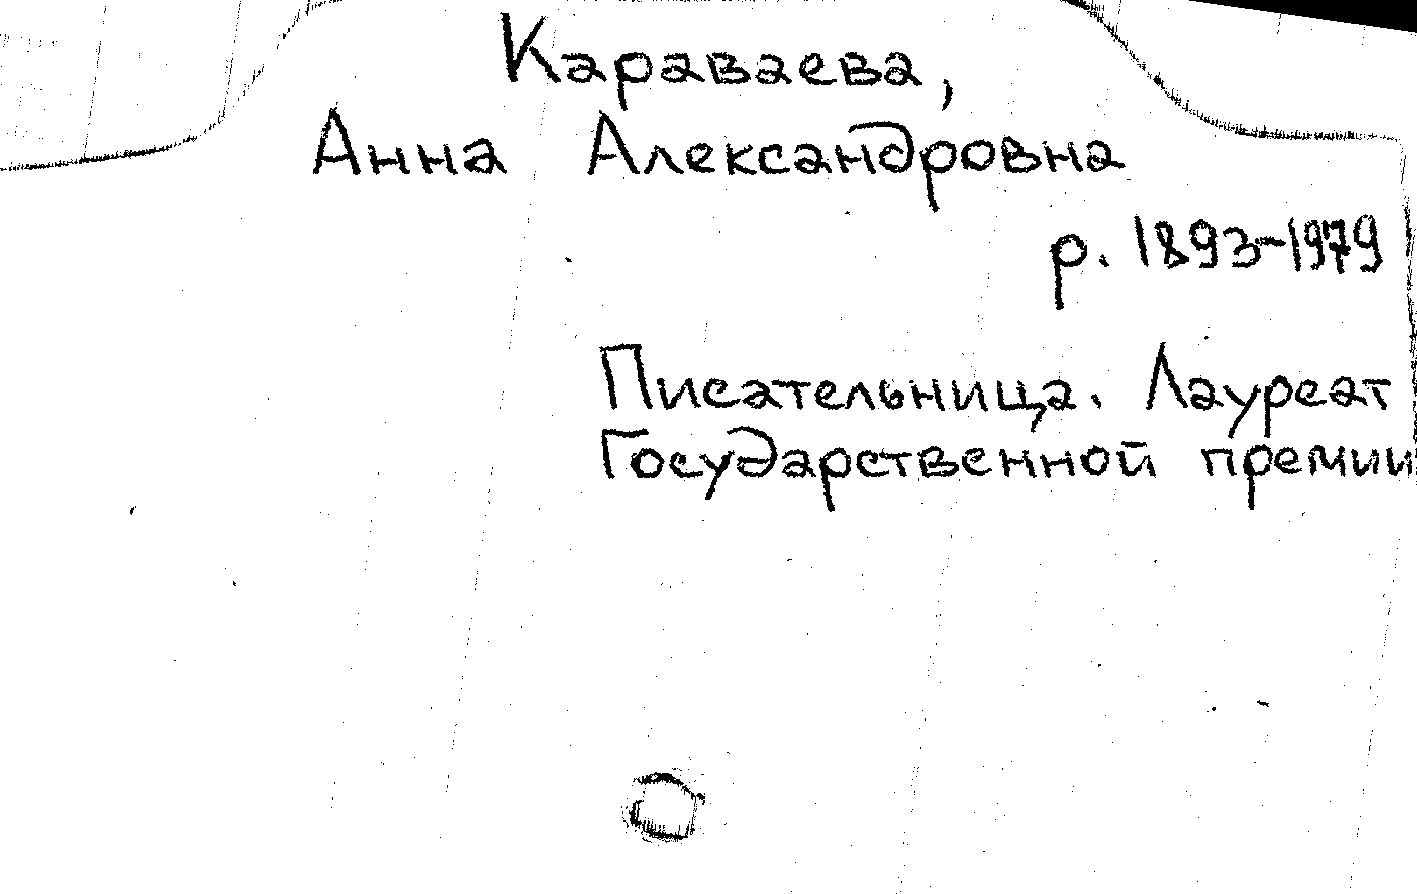 Караваева,
Анна Александровна
р. 1893-1979
Писательница. Лауреат
Государственной премии